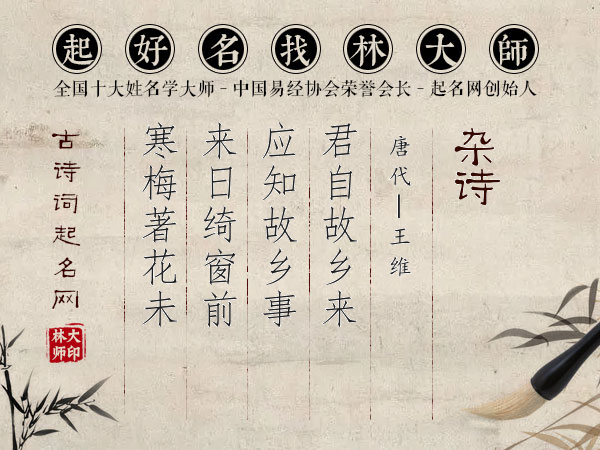 起好名找林大師
全国十大姓名学大师 - 中国易经协会荣誉会长 - 起名网创始人
杂诗
唐代—王维
君自故乡来
应知故乡事
来日绮窗前
寒梅著花未
古诗词起名网
大印
林师